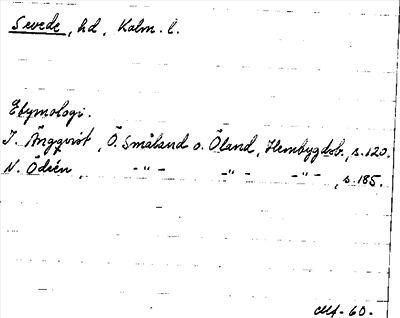 Sevede, hd, Kalm. l.
Etymologi.
J. Ängqvist, Ö. Småland o. Öland, Hembygdsb., s. 120.
N. Ödéen, -"- -"- -"-, s. 185.
-60-